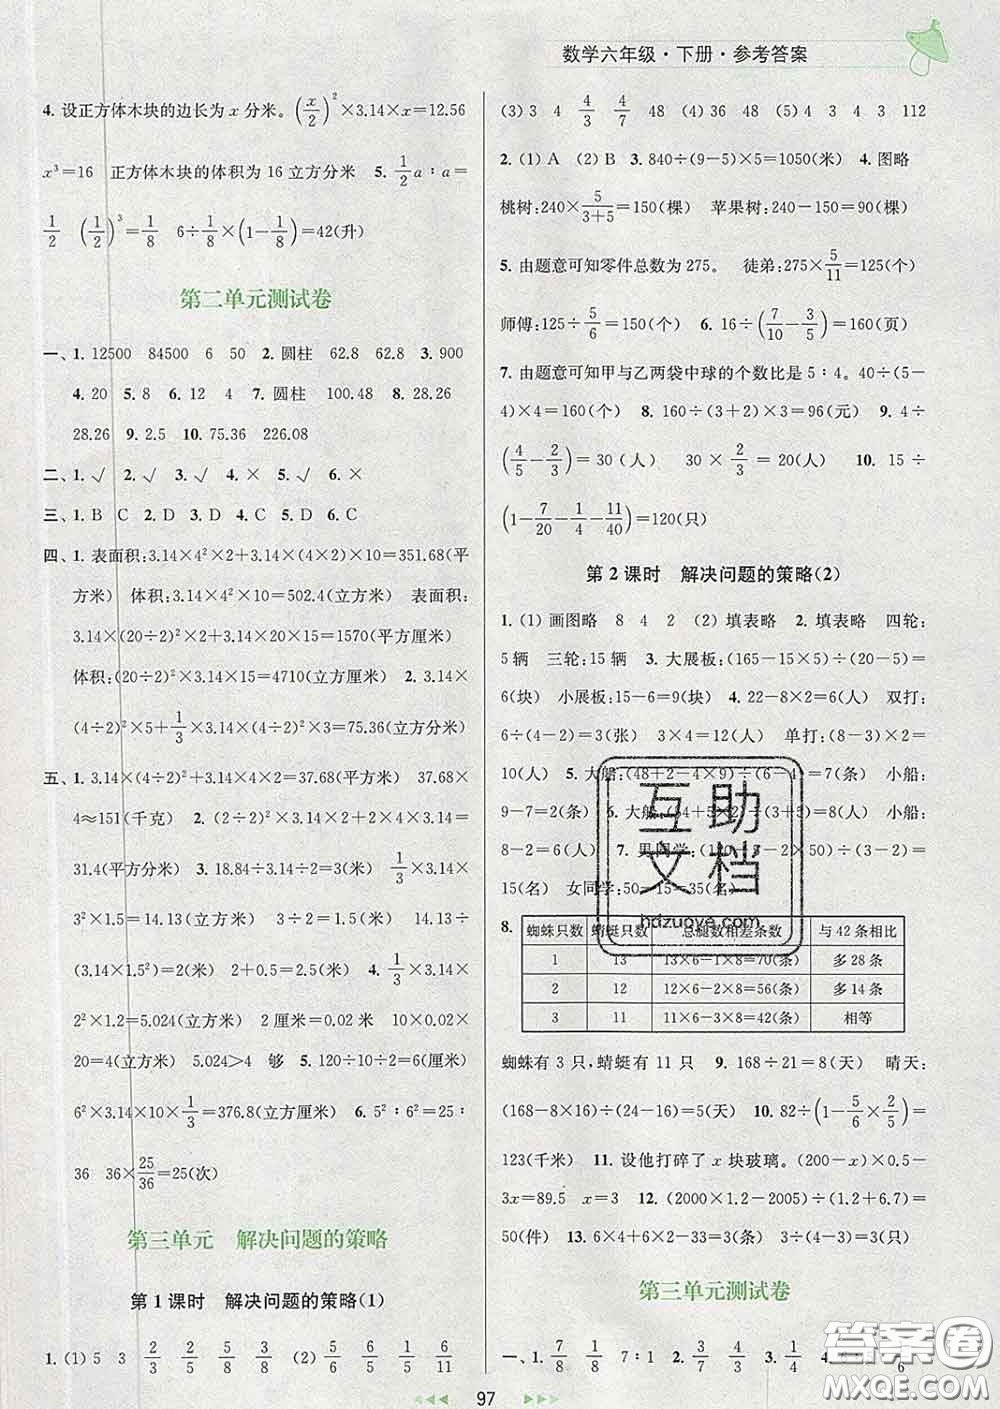 数学六年级·下册·参考答案
4. 设正方体木块的边长为 x 分米。(x/2)²×3.14×x=12.56
x³=16 正方体木块的体积为 16 立方分米 5. 1/2 a∶a=
1/2 (1/2)³=1/8 6÷1/8×(1-1/8)=42(升)
第二单元测试卷
一、1. 12500 84500 6 50 2. 圆柱 62.8 62.8 3. 900
4. 20 5. 8 6. 12 4 7. 圆柱 100.48 8. 28.26
28.26 9. 2.5 10. 75.36 226.08
二、1. √ 2. √ 3. √ 4. × 5. √ 6. ×
三、1. B C 2. D 3. D 4. C 5. D 6. C
四、1. 表面积:3.14×4²×2+3.14×(4×2)×10=351.68(平
方分米) 体积:3.14×4²×10=502.4(立方分米) 表面积:
3.14×(20÷2)²×2+3.14×20×15=1570(平方厘米)
体积:(20÷2)²×3.14×15=4710(立方厘米) 2. 3.14×
(4÷2)²×5+1/3×3.14×(4÷2)²×3=75.36(立方分米)
五、1. 3.14×(4÷2)²+3.14×4×2=37.68(平方米) 37.68×
4≈151(千克) 2. (2÷2)²×3.14×2+2×4×3.14=
31.4(平方分米) 3. 18.84÷3.14÷2=3(米) 1/3×3.14×
3²×1.5=14.13(立方米) 3÷2=1.5(米) 14.13÷
(3.14×1.5²)=2(米) 2+0.5=2.5(米) 4. 1/3×3.14×
2²×1.2=5.024(立方米) 2 厘米=0.02 米 10×0.02×
20=4(立方米) 5.024>4 够 5. 120÷10÷2=6(厘米)
6²×3.14×10×1/3=376.8(立方厘米) 6. 5²∶6²=25∶
36 36×25/36=25(次)
第三单元 解决问题的策略
第 1 课时 解决问题的策略(1)
1. (1) 5 3 2/3 2/5 5/8 3/8 (2) 5/6 6/5 5/11 6/11
(3) 3 4 4/3 4/7 48 (4) 36 48 (5) 4 3 4 3 112
2. (1) A (2) B 3. 840÷(9-5)×5=1050(米) 4. 图略
桃树:240×5/(3+5)=150(棵) 苹果树:240-150=90(棵)
5. 由题意可知零件总数为 275。 徒弟:275×5/11=125(个)
师傅:125÷5/6=150(个) 6. 16÷(7/10-3/5)=160(页)
7. 由题意可知甲与乙两袋中球的个数比是 5∶4。40÷(5-
4)×4=160(个) 8. 160÷(3+2)×3=96(元) 9. 4÷
(4/5-2/3)=30(人) 30×2/3=20(人) 10. 15÷
(1-7/20-1/4-11/40)=120(只)
第 2 课时 解决问题的策略(2)
1. (1) 画图略 8 4 2 (2) 填表略 2. 填表略 四轮:
5 辆 三轮:15 辆 3. 大展板:(165-15×5)÷(20-5)=
6(块) 小展板:15-6=9(块) 4. 22-8×2=6(人) 双打:
6÷(4-2)=3(张) 3×4=12(人) 单打:(8-3)×2=
10(人) 5. 大船:(48+2-4×9)÷(6-4)=7(条) 小船:
9-7=2(条) 6. 大船:(54+5×2)÷(
8-2=6(条) 7. 男同学:
15(名) 女同学:50-15=35(名)
8.
蜘蛛只数 蜻蜓只数 总腿数相差条数 与 42 条相比
1 13 13×6-1×8=70(条) 多 28 条
2 12 12×6-2×8=56(条) 多 14 条
3 11 11×6-3×8=42(条) 相等
蜘蛛有 3 只,蜻蜓有 11 只 9. 168÷21=8(天) 晴天:
(168-8×16)÷(24-16)=5(天) 10. 82÷(1-5/6×2/5)=
123(千米) 11. 设他打碎了 x 块玻璃。(200-x)×0.5-
3x=89.5 x=3 12. (2000×1.2-2005)÷(1.2+6.7)=
50(件) 13. 6×4+6×2-33=3(分) 3÷(4-3)=3(辆)
第三单元测试卷
一、1. 7/8 1/8 7∶1 2. 4/7 3/7 3.
97
互助文档
hdzuoye.com
答案圈
MXQE.COM